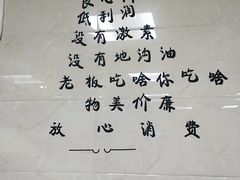 良心料
低利润
没有激素
没有地沟油
老板吃啥你吃啥
物美价廉
放心消费